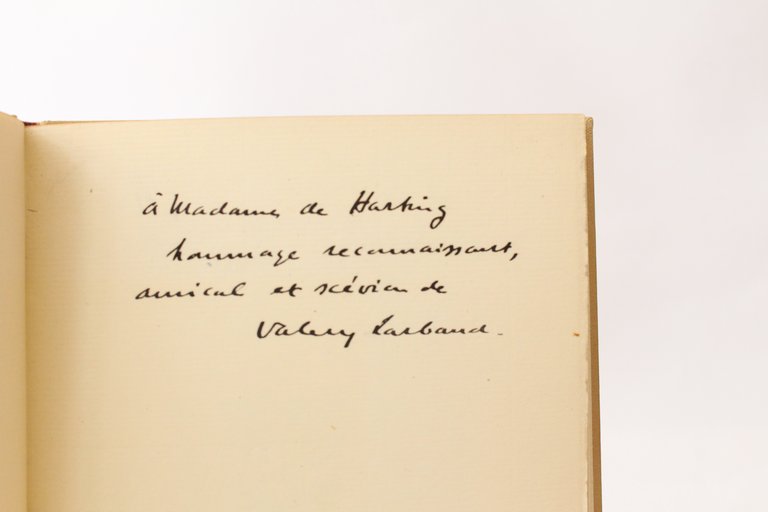 à Madame de Harting
hommage reconnaissant,
amical et scévien de
Valery Larbaud.